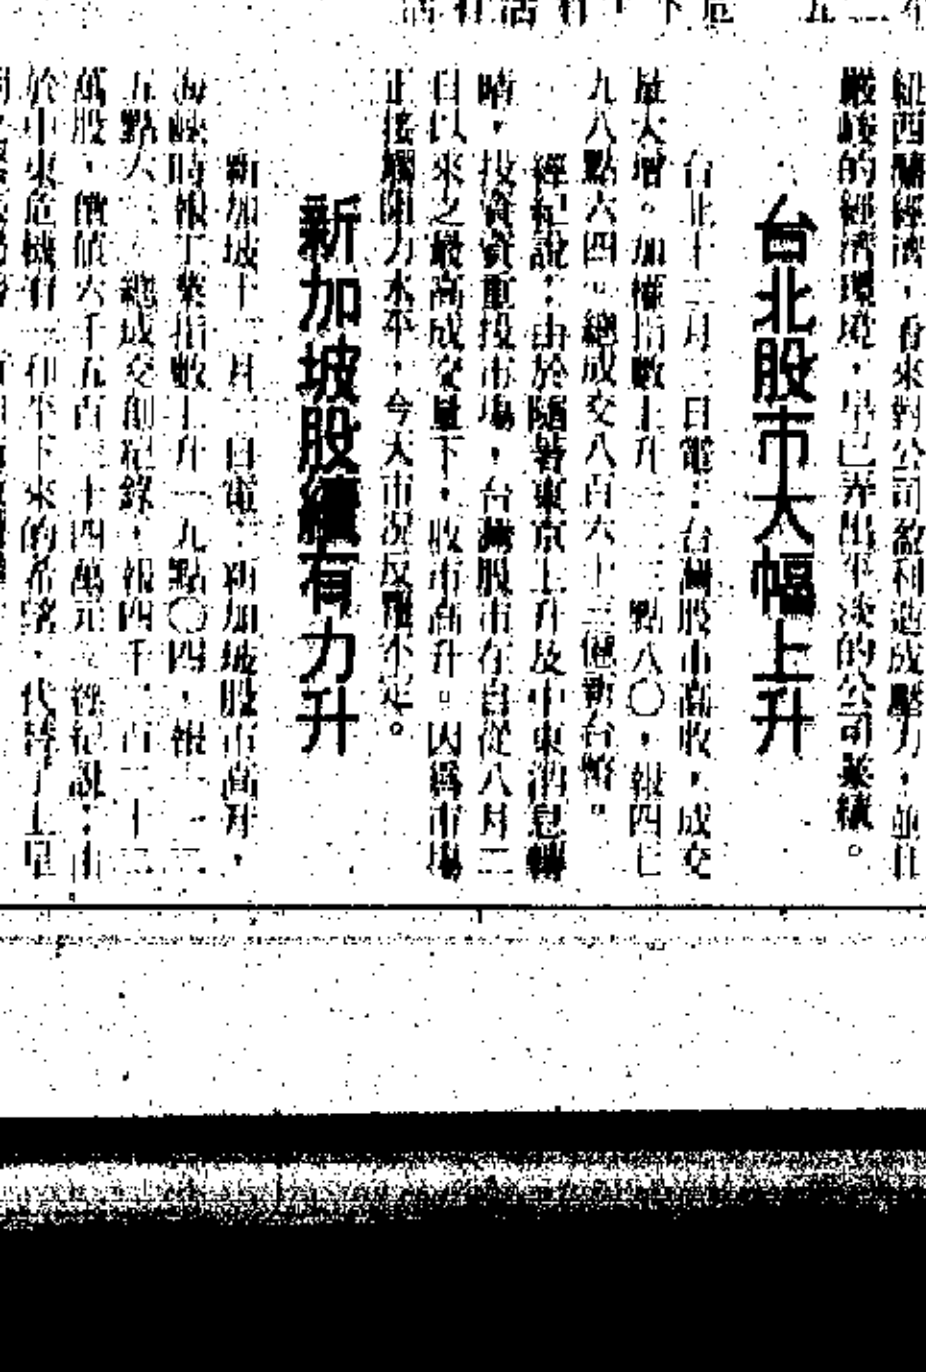 紐西蘭經濟，看來對公司盈利造成壓力，並且
嚴峻的經濟環境，早已弄出平淡的公司業績。
台北股市大幅上升
台北十二月三日電：台灣股市高收，成交
量大增。加權指數上升二三二點八〇，報四七
九八點六四。總成交八百六十三億新台幣。
經紀說：由於隨著東京上升及中東消息轉
晴，投資資重投市場，台灣股市在自從八月二
日以來之最高成交量下，收市高升。因為市場
正接觸阻力水平，今天市況反覆不定。
新加坡股續有力升
新加坡十二月三日電：新加坡股市高升，
海峽時報工業指數上升一九點〇四，報一一二
五點六三。總成交創紀錄，報四千二百二十二
萬股，價值六千五百三十四萬元。經紀說：由
於中東危機有一和平下來的希望，代替了上星